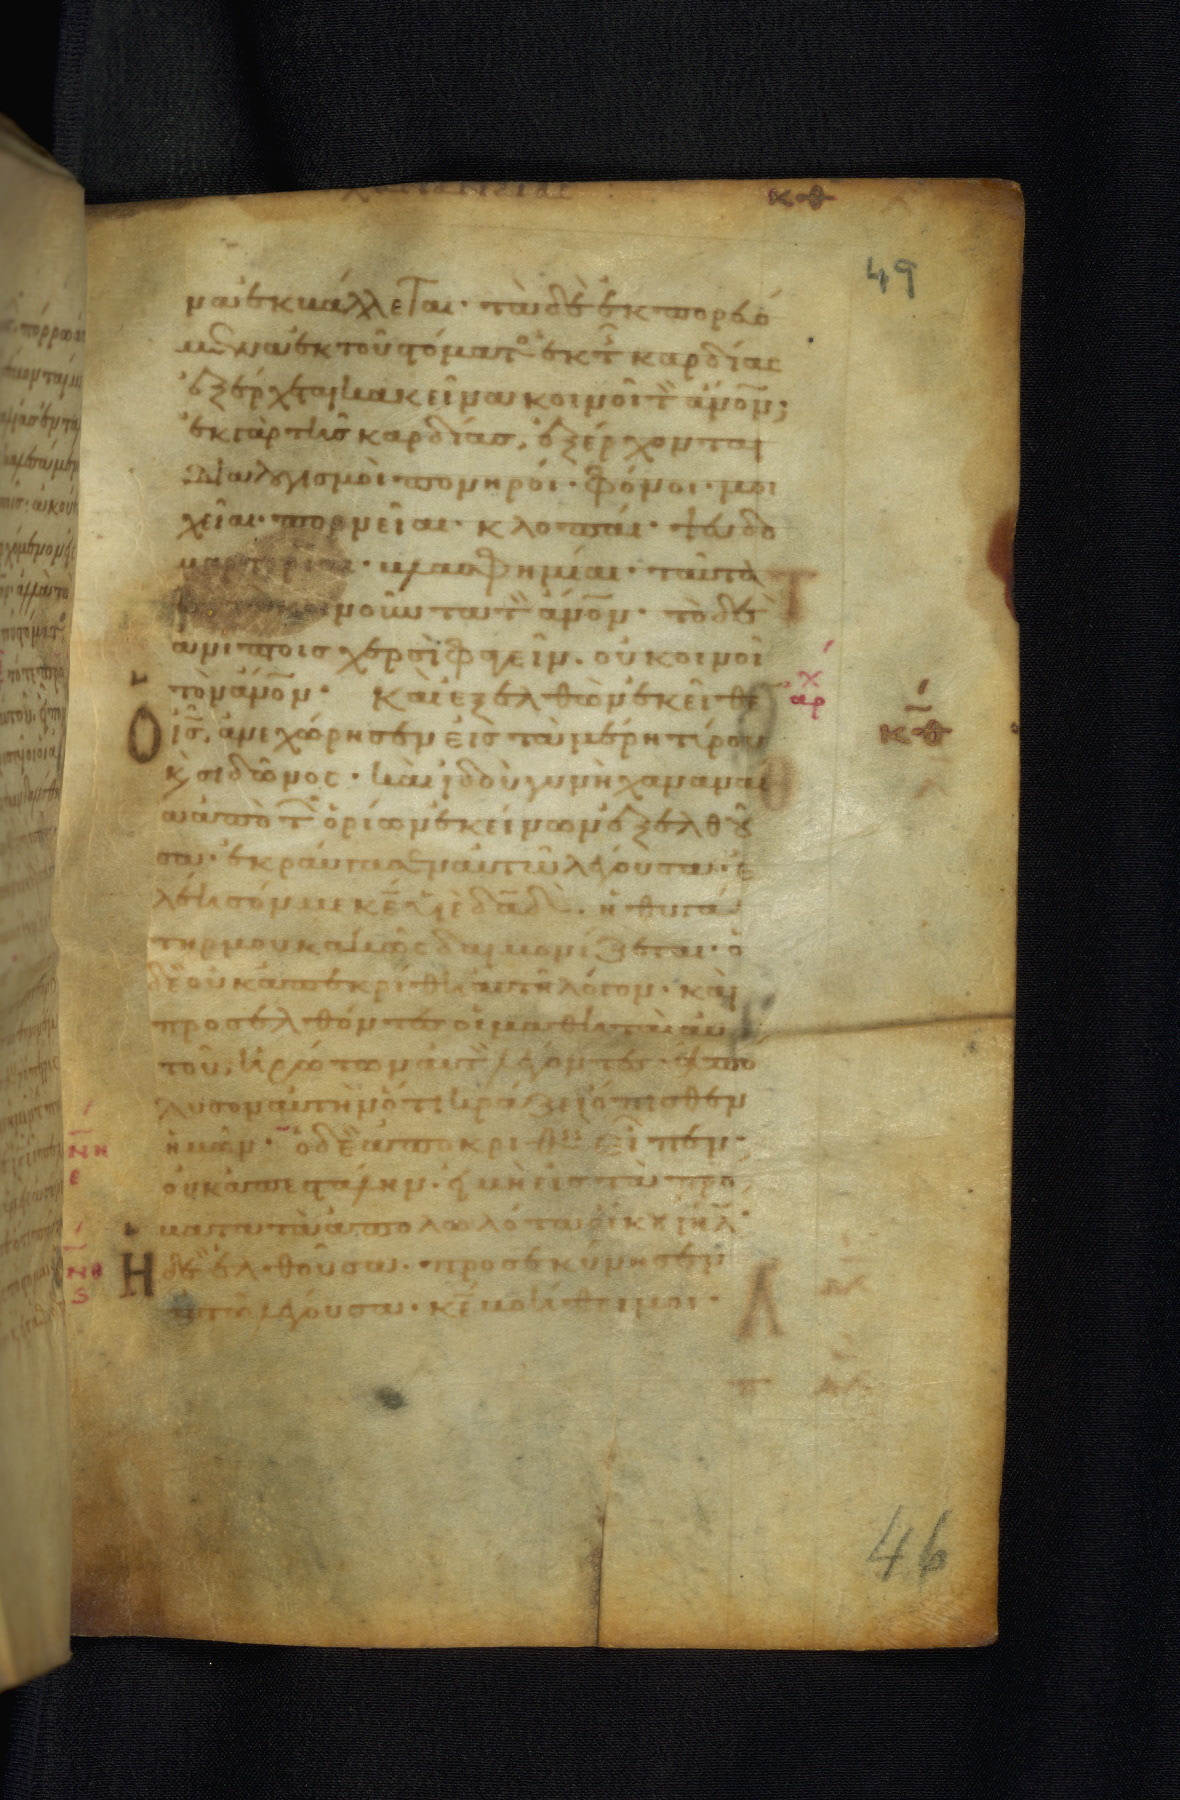 κθ
49
να ἐκβάλλεται· τὰ δὲ ἐκπορευό
μενα ἐκ τοῦ στόματο ἐκ τ καρδίας
ἐξέρχεται κἀκεῖνα κοινοῖ τ ἄνον;
ἐκ γὰρ τῆς καρδίας, ἐξέρχονται
διαλογισμοὶ πονηροί· φόνοι· μοι
χεῖαι· πορνεῖαι· κλοπαί· ψευδο
μαρτυρίαι· βλασφημίαι· ταῦτά
κοινοῦντα τ ἄνον· τὸ δὲ
ἀνίπτοις χερσὶ φαγεῖν. οὐ κοινοῖ
τὸν ἄνον· Καὶ ἐξελθὼν ἐκεῖθε
χ
αρ
κθ
Ὁ ἰς, ἀνεχώρησεν εἰς τὰ μέρη τύρου
κ σιδῶνος· καὶ ἰδοὺ γυνὴ χαναναί
α ἀπὸ τ ὁρίων ἐκείνων ἐξελθοῦ
σα· ἐκραύγασεν αὐτῶ λέγουσα· ἐ
λέησόν με κε υἱὲ δαδ· ἡ θυγά
τηρ μου κακῶς δαιμονίζεται· ὁ
δὲ οὐκ ἀπεκρίθη αὐτῆ λόγον· καὶ
προσελθόντες οἱ μαθηταὶ αὐ
τοῦ, ἠρώτων αὐτ λέγοντες· ἀπό
λυσον αὐτὴν ὅτι κράζει ὄπισθεν
νη
ε
ἡμῶν· ὁ δὲ ἀποκριθεὶς εἶπεν·
οὐκ ἀπεστάλην· εἰ μὴ εἰς τὰ πρό
βατα τὰ ἀπολωλότα οἴκου ιηλ·
νθ
ς
Ἡ δὲ ἐλθοῦσα· προσεκύνησεν
αὐτῶ λέγουσα· κε βοήθει μοι·
46